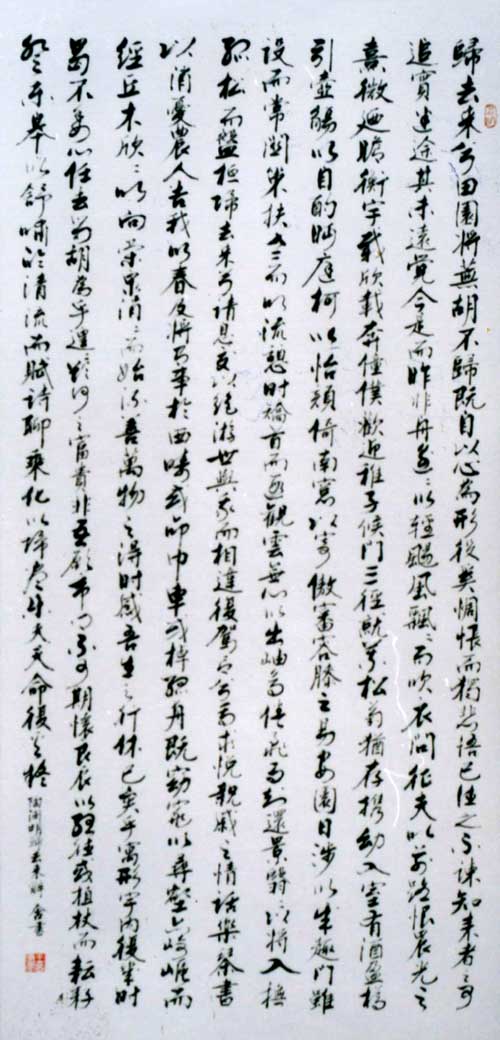 歸去來兮田園將蕪胡不歸既自以心為形役奚惆悵而獨悲悟已往之不諫知來者之可
追實迷途其未遠覺今是而昨非舟遙々以輕颺風飄々而吹衣問征夫以前路恨晨光之
熹微迺瞻衡宇載欣載奔僮僕歡迎稚子候門三徑就荒松菊猶存攜幼入室有酒盈樽
引壺觴以自酌眄庭柯以怡顏倚南窗以寄傲審容膝之易安園日涉以成趣門雖
設而常關策扶老以流憩時矯首而遐觀雲無心以出岫鳥倦飛而知還景翳々以將入撫
孤松而盤桓歸去來兮請息交以絕游世與我而相違復駕言兮焉求悅親戚之情話樂琴書
以消憂農人告我以春及將有事於西疇或命巾車或棹孤舟既窈窕以尋壑亦崎嶇而
經丘木欣々以向榮泉涓々而始流善萬物之得時感吾生之行休已矣乎寓形宇內復幾時
曷不委心任去留胡為乎遑遑何之富貴非吾願帝鄉不可期懷良辰以孤往或植杖而耘耔
登東皋以舒嘯臨清流而賦詩聊乘化以歸盡樂夫天命復奚疑
陶淵明歸去來辭 書